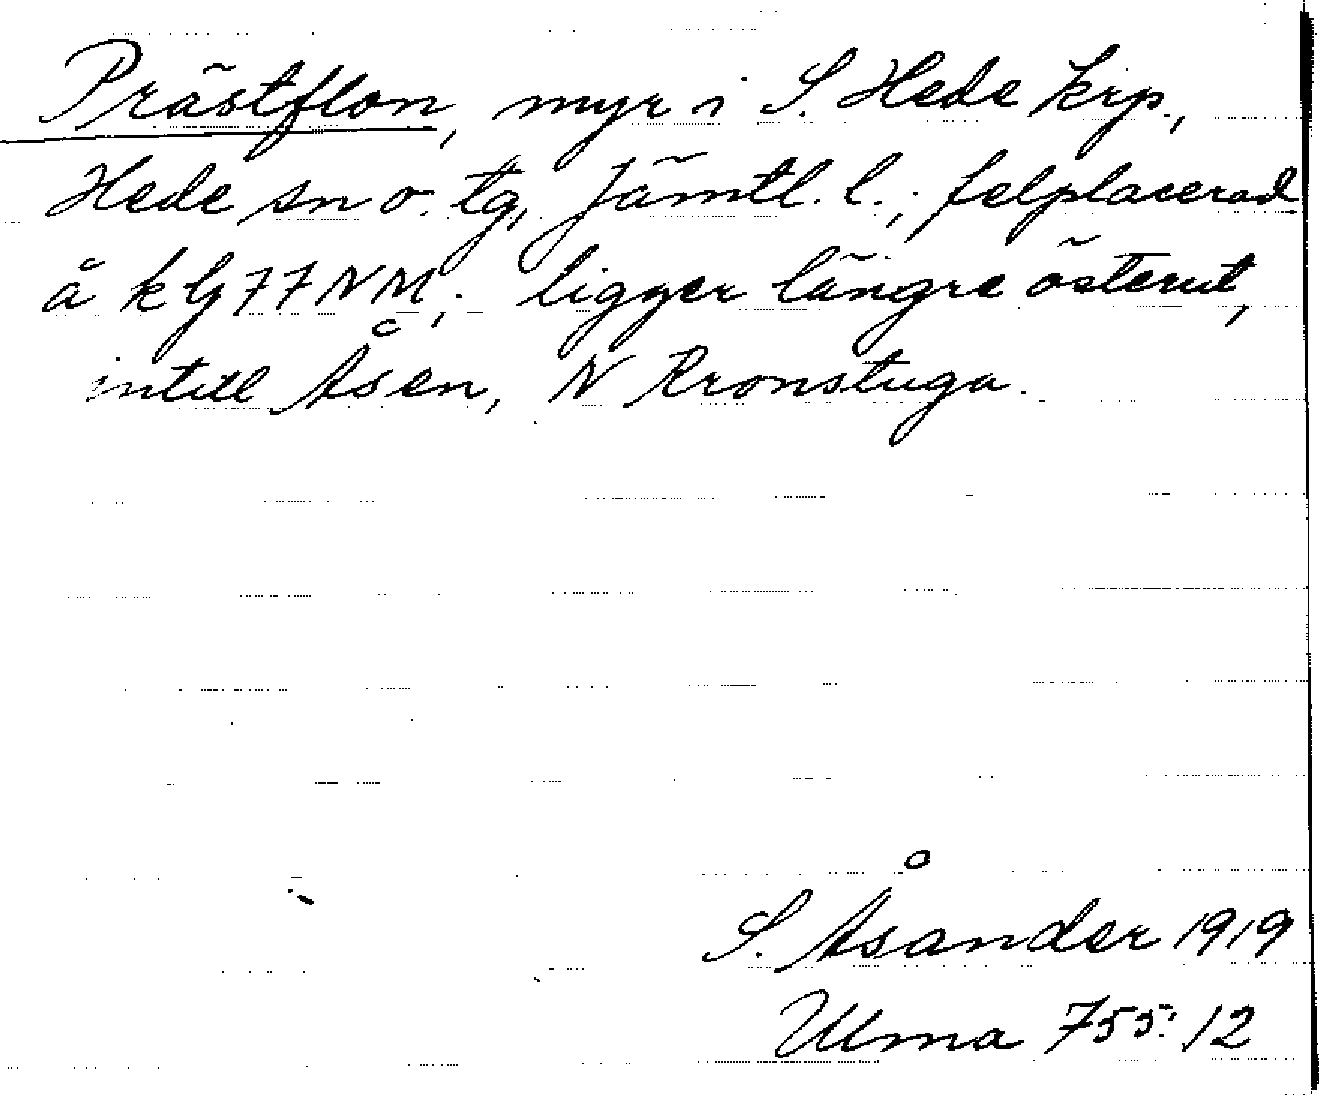 Prästflon, myr i S. Hede krp.,
Hede sn o. tg, Jämtl. l.; felplacerad
å kbl 77 NM; ligger längre österut,
intill Åsen, N Kronstuga.
S. Åsander 1919
Ulma 755:12